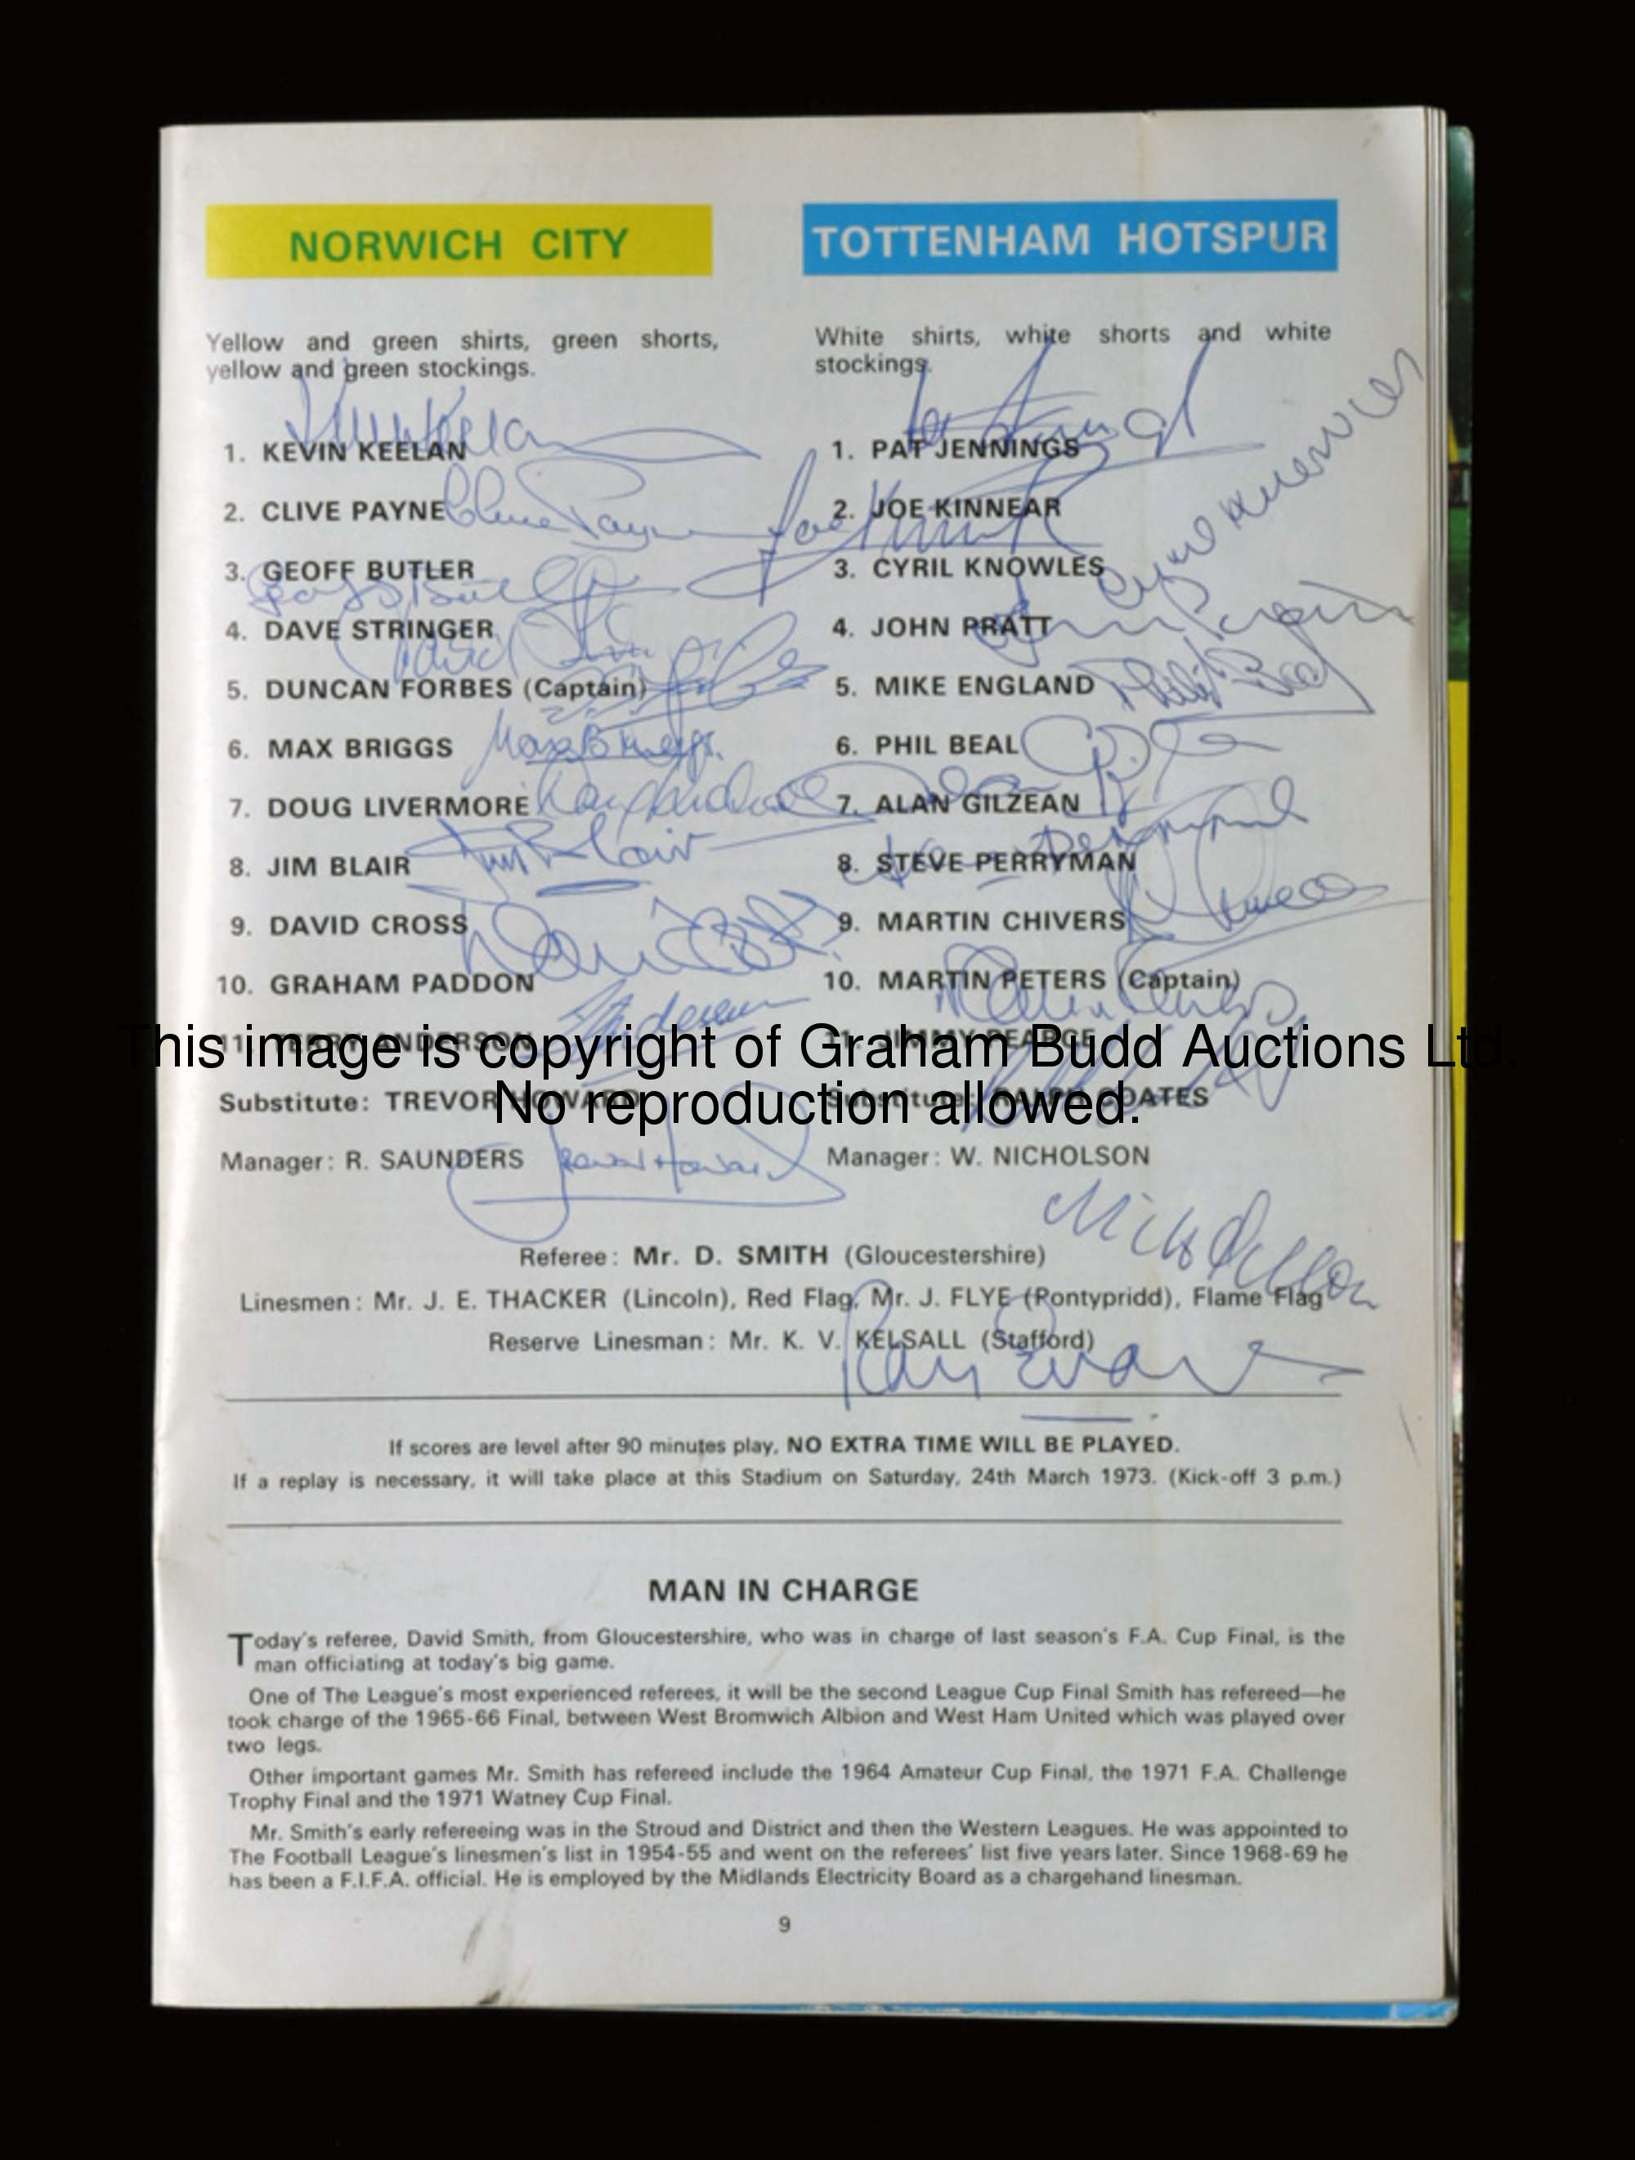 NORWICH CITY
TOTTENHAM HOTSPUR
Yellow and green shirts, green shorts,
yellow and green stockings.
White shirts, white shorts and white
stockings.
1. KEVIN KEELAN
2. CLIVE PAYNE
3. GEOFF BUTLER
4. DAVE STRINGER
5. DUNCAN FORBES (Captain)
6. MAX BRIGGS
7. DOUG LIVERMORE
8. JIM BLAIR
9. DAVID CROSS
10. GRAHAM PADDON
11. TERRY ANDERSON
Substitute: TREVOR HOWARD
Manager: R. SAUNDERS
1. PAT JENNINGS
2. JOE KINNEAR
3. CYRIL KNOWLES
4. JOHN PRATT
5. MIKE ENGLAND
6. PHIL BEAL
7. ALAN GILZEAN
8. STEVE PERRYMAN
9. MARTIN CHIVERS
10. MARTIN PETERS (Captain)
11. JIMMY PEARCE
Substitute: RALPH COATES
Manager: W. NICHOLSON
This image is copyright of Graham Budd Auctions Ltd.
No reproduction allowed.
Referee: Mr. D. SMITH (Gloucestershire)
Linesmen: Mr. J. E. THACKER (Lincoln), Red Flag, Mr. J. FLYE (Pontypridd), Flame Flag
Reserve Linesman: Mr. K. V. KELSALL (Stafford)
Ray Evans
If scores are level after 90 minutes play, NO EXTRA TIME WILL BE PLAYED.
If a replay is necessary, it will take place at this Stadium on Saturday, 24th March 1973. (Kick-off 3 p.m.)
MAN IN CHARGE
Today's referee, David Smith, from Gloucestershire, who was in charge of last season's F.A. Cup Final, is the
man officiating at today's big game.
One of The League's most experienced referees, it will be the second League Cup Final Smith has refereed—he
took charge of the 1965-66 Final, between West Bromwich Albion and West Ham United which was played over
two legs.
Other important games Mr. Smith has refereed include the 1964 Amateur Cup Final, the 1971 F.A. Challenge
Trophy Final and the 1971 Watney Cup Final.
Mr. Smith's early refereeing was in the Stroud and District and then the Western Leagues. He was appointed to
The Football League's linesmen's list in 1954-55 and went on the referees' list five years later. Since 1968-69 he
has been a F.I.F.A. official. He is employed by the Midlands Electricity Board as a chargehand linesman.
9